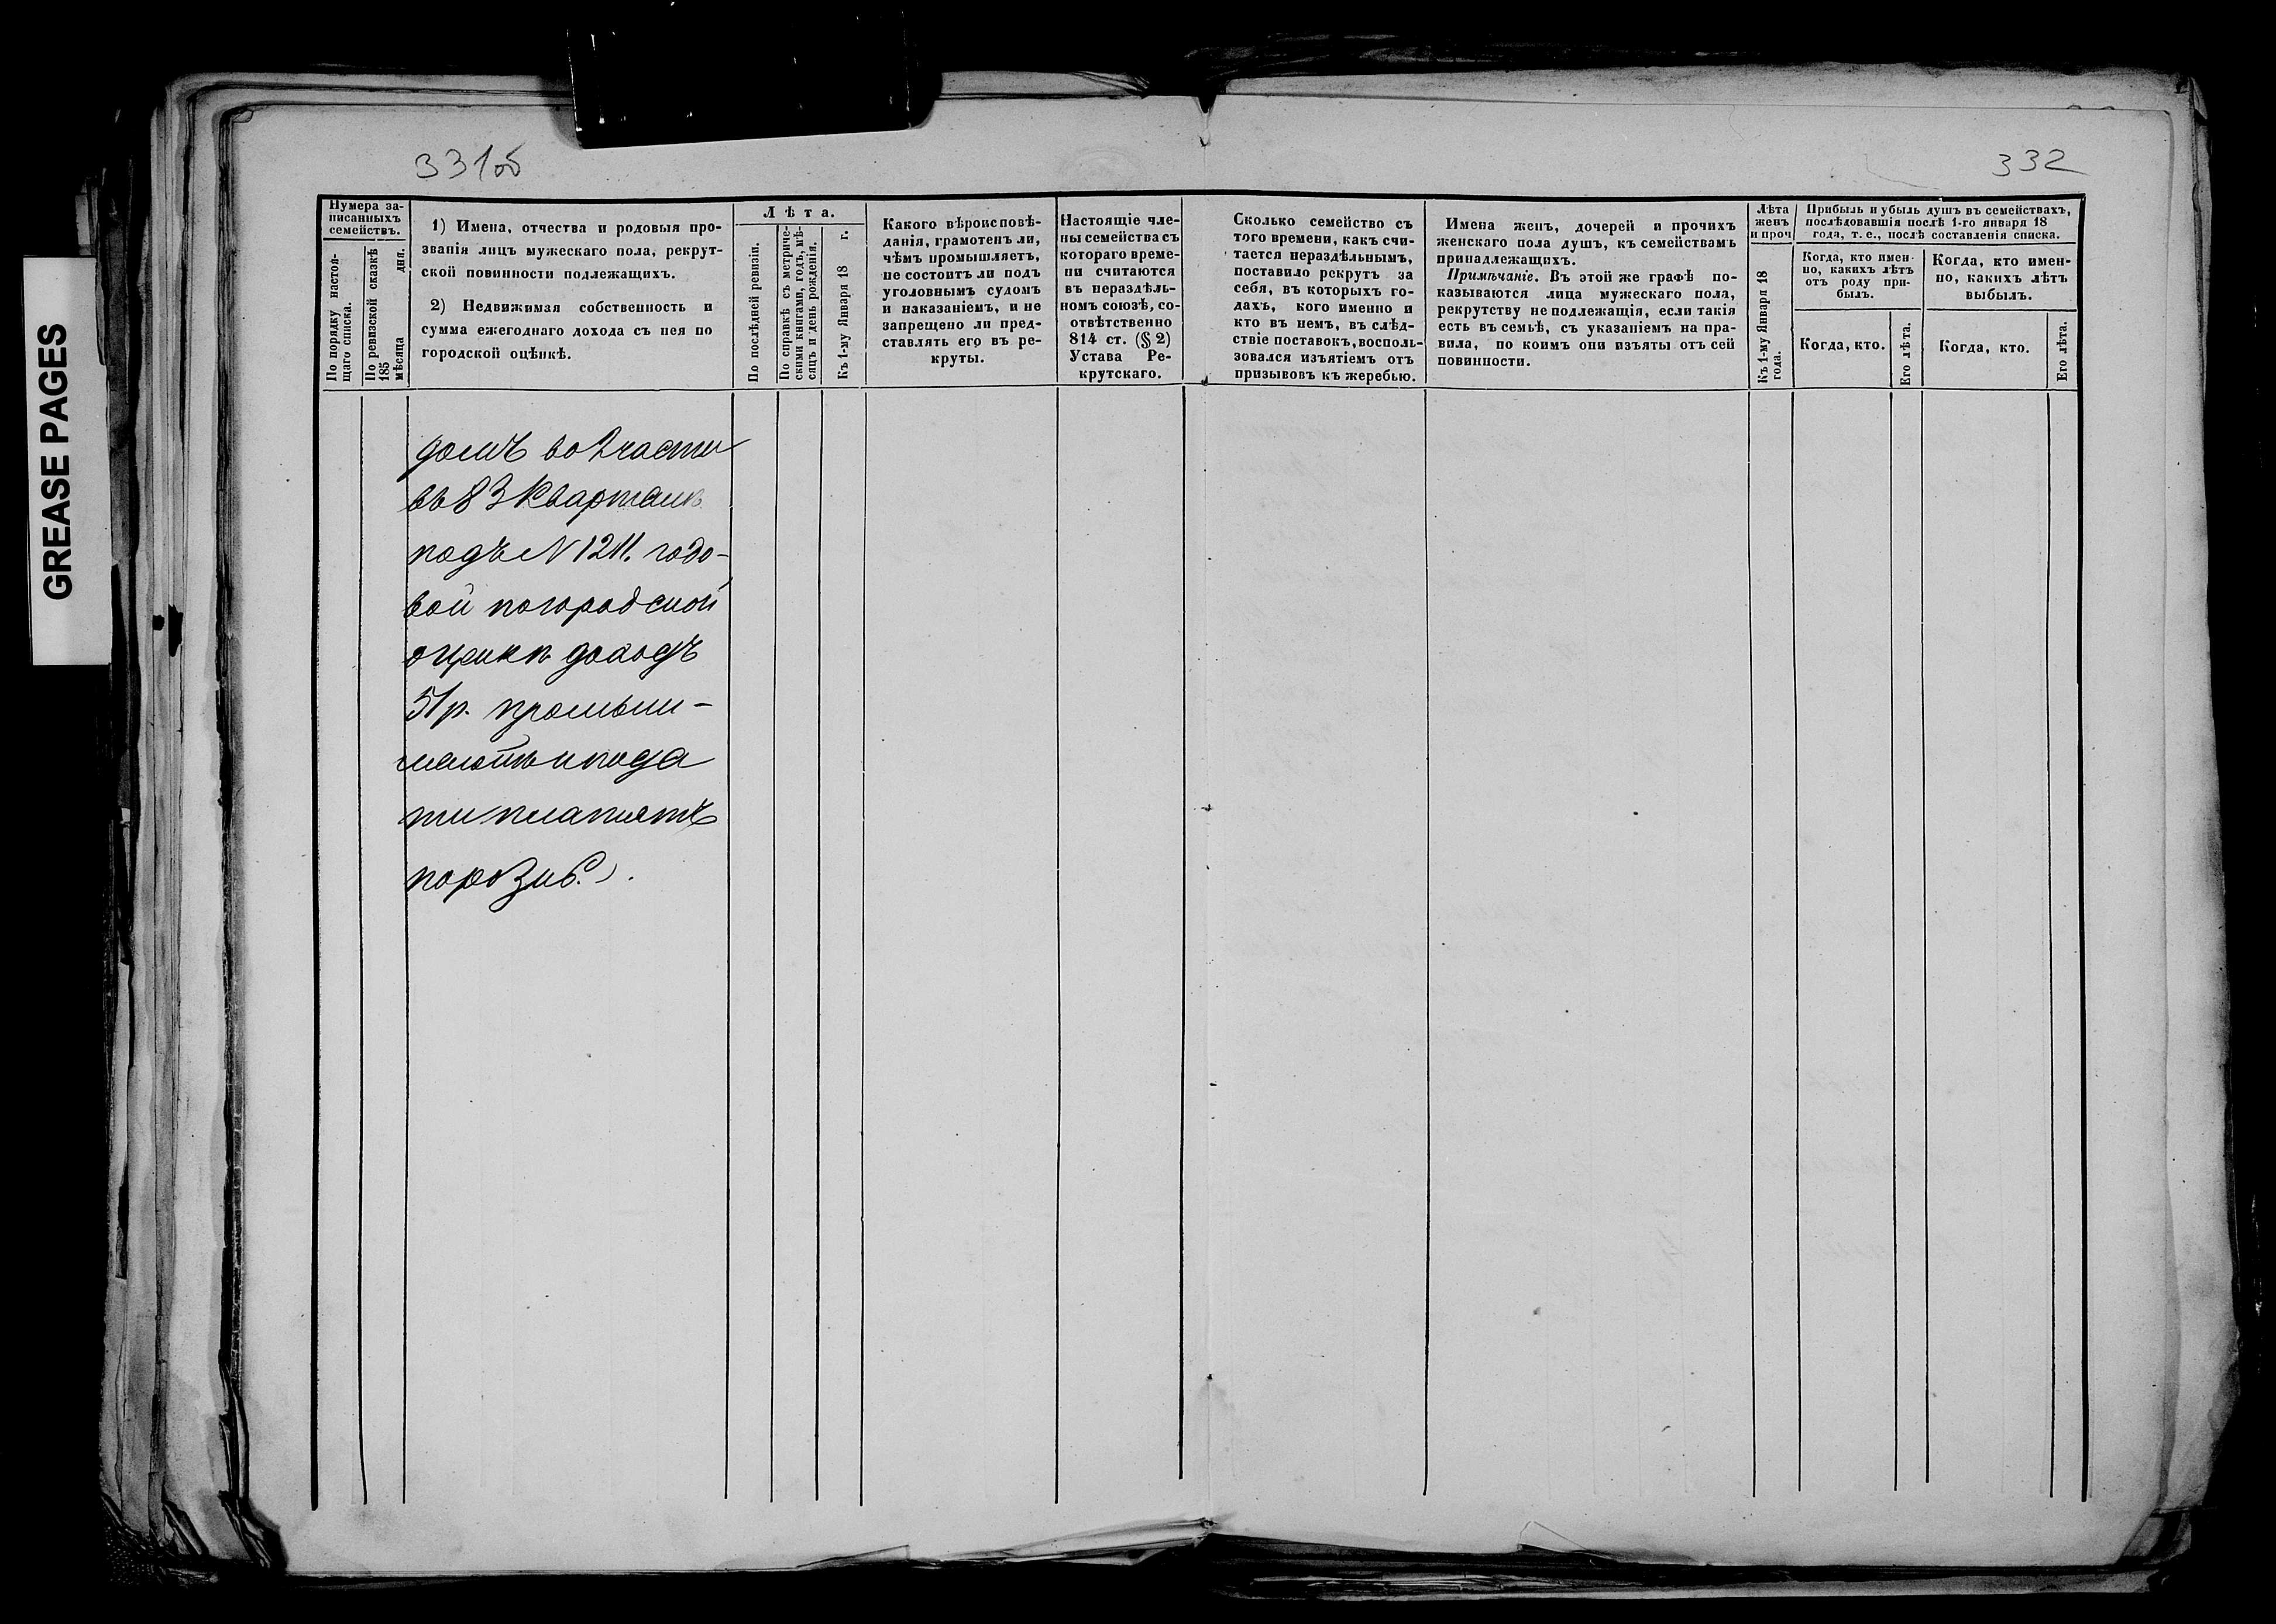 GREASE PAGES
331об
332
Нумера за-
писанныхъ
семействъ.
По порядку настоя-
щаго списка.
По ревизской сказкѣ
185
мѣсяца дня.
1) Имена, отчества и родовыя про-
званія лицъ мужескаго пола, рекрут-
ской повинности подлежащихъ.
2) Недвижимая собственность и
сумма ежегоднаго дохода съ нея по
городской оцѣнкѣ.
Лѣта.
По послѣдней ревизіи.
По справкѣ съ метриче-
скими книгами, годъ, мѣ-
сяцъ и день рожденія.
Къ 1-му Января 18 г.
Какого вѣроисповѣ-
данія, грамотенъ ли,
чѣмъ промышляетъ,
не состоитъ ли подъ
уголовнымъ судомъ
и наказаніемъ, и не
запрещено ли пред-
ставлять его въ ре-
круты.
Настоящіе чле-
ны семейства съ
котораго време-
ни считаются
въ нераздѣль-
номъ союзѣ, со-
отвѣтственно
814 ст. (§ 2)
Устава Ре-
крутскаго.
Сколько семейство съ
того времени, какъ счи-
тается нераздѣльнымъ,
поставило рекрутъ за
себя, въ которыхъ го-
дахъ, кого именно и
кто въ немъ, въ слѣд-
ствіе поставокъ, восполь-
зовался изъятіемъ отъ
призывовъ къ жеребью.
Имена женъ, дочерей и прочихъ
женскаго пола душъ, къ семействамъ
принадлежащихъ.
Примѣчаніе. Въ этой же графѣ по-
казываются лица мужескаго пола,
рекрутству не подлежащія, если такія
есть въ семьѣ, съ указаніемъ на пра-
вила, по коимъ они изъяты отъ сей
повинности.
Лѣта
женъ
и проч
Къ 1-му Января 18
года.
Прибыль и убыль душъ въ семействахъ,
послѣдовавшія послѣ 1-го января 18
года, т. е., послѣ составленія списка.
Когда, кто имен-
но, какихъ лѣтъ
отъ роду при-
былъ.
Когда, кто.
Его лѣта.
Когда, кто имен-
но, какихъ лѣтъ
выбылъ.
Когда, кто.
Его лѣта.
домъ во 2 части
въ 83 кварталѣ
подъ N 1211. годо-
вой по городской
оцѣнкѣ доходъ
51 р. промыш-
и пода
ти платятъ